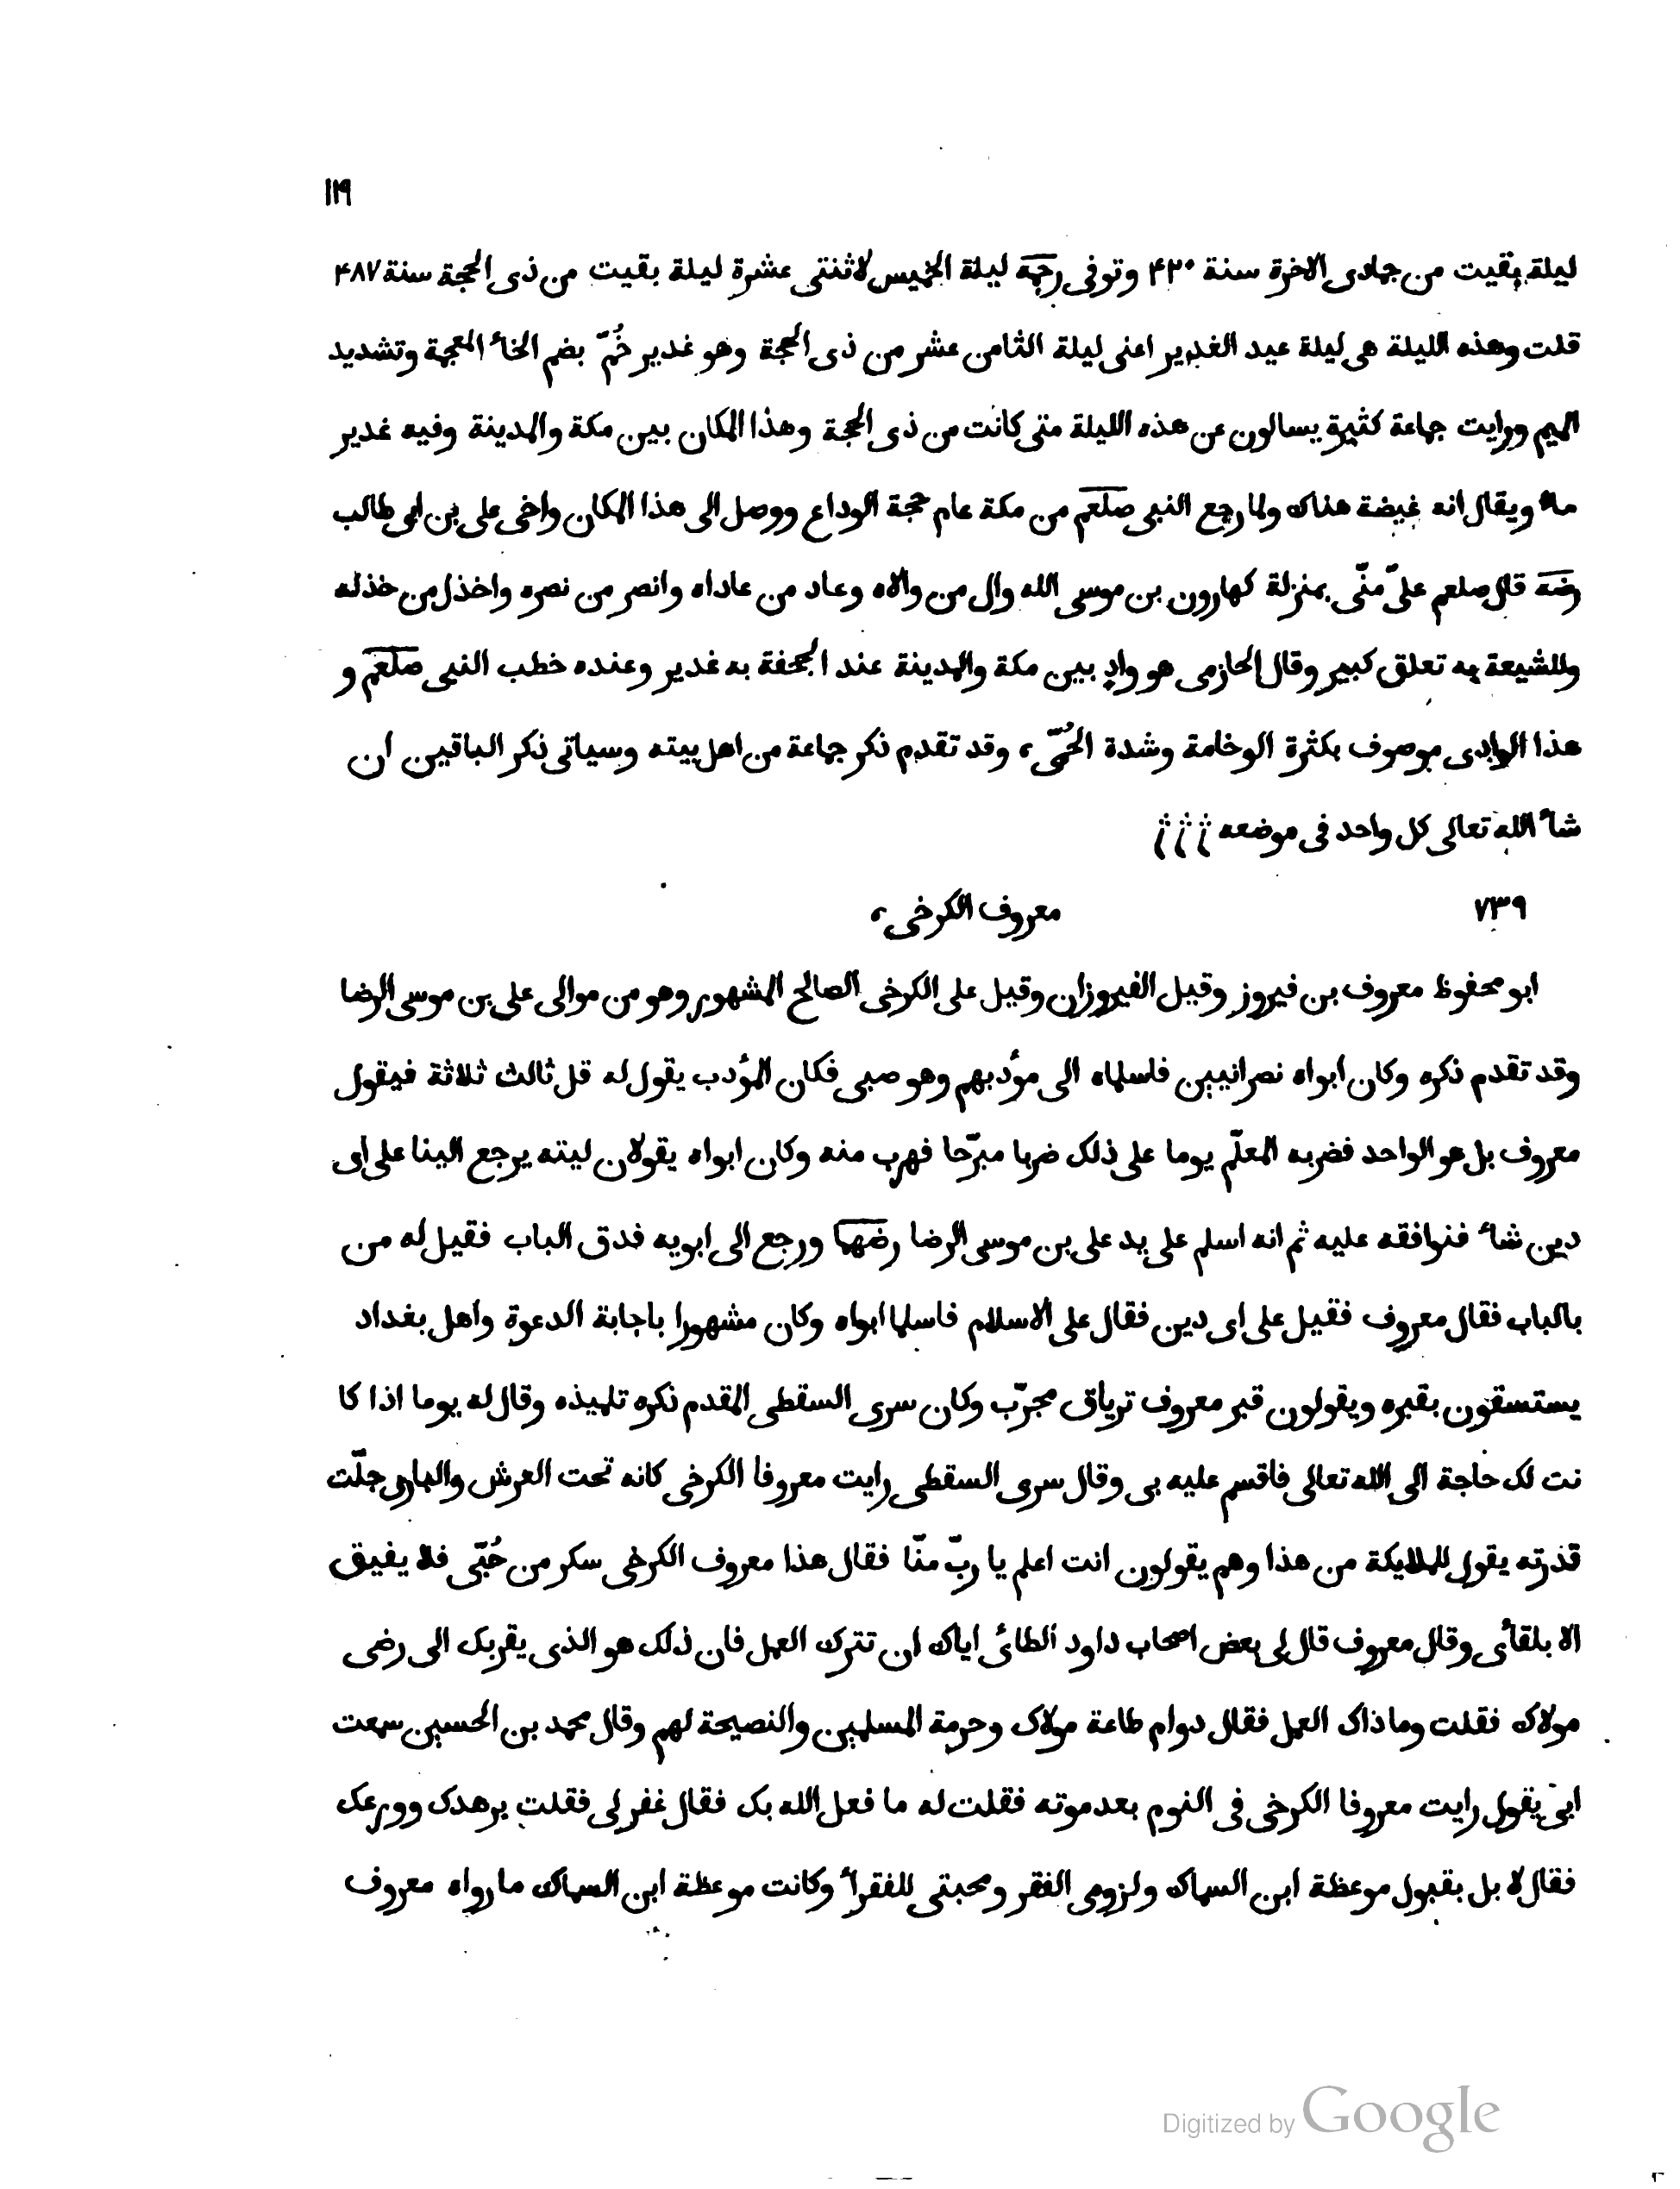 ١١٩
ليلة بقيت من جمادى الاخرة سنة ۴۲۰ وتوفى رحمه ليلة الخميس لاثنتى عشرة ليلة بقيت من ذى الحجة سنة ۴۸۷
قلت وهذه الليلة هى ليلة عيد الغدير اعنى ليلة الثامن عشر من ذى الحجة وهو غدير خُمّ بضم الخاء المعجمة وتشديد
الميم ورايت جماعة كثيرة يسالون عن هذه الليلة متى كانت من ذى الحجة وهذا المكان بين مكة والمدينة وفيه غدير
ماء ويقال انه غيضة هناك ولما رجع النبى صلعم من مكة عام حجة الوداع ووصل الى هذا المكان واخى على بن ابى طالب
رضه قال صلعم علىّ منّى بمنزلة كهارون بن موسى الله وال من والاه وعاد من عاداه وانصر من نصره واخذل من خذله
وللشيعة به تعلق كبير وقال الحازمى هو وادٍ بين مكة والمدينة عند الجحفة به غدير وعنده خطب النبى صلعم و
هذا الوادى موصوف بكثرة الوخامة وشدة الحُمّى، وقد تقدم ذكر جماعة من اهل بيته وسياتى ذكر الباقين ان
شاء الله تعالى كل واحد فى موضعه
٧٣٩ معروف الكرخى،
ابو محفوظ معروف بن فيروز وقيل الفيروزان وقيل على الكرخى الصالح المشهور وهو من موالى على بن موسى الرضا
وقد تقدم ذكره وكان ابواه نصرانيين فاسلماه الى مؤدبهم وهو صبى فكان المؤدب يقول له قل ثالث ثلاثة فيقول
معروف بل هو الواحد فضربه المعلّم يوما على ذلك ضربا مبرّحا فهرب منه وكان ابواه يقولان ليته يرجع الينا على اى
دين شاء فنوافقه عليه ثم انه اسلم على يد على بن موسى الرضا رضهما ورجع الى ابويه فدق الباب فقيل له من
بالباب فقال معروف فقيل على اى دين فقال على الاسلام فاسلما ابواه وكان مشهورا باجابة الدعوة واهل بغداد
يستسقون بقبره ويقولون قبر معروف ترياق مجرّب وكان سرى السقطى المقدم ذكره تلميذه وقال له يوما اذا كا
نت لك حاجة الى الله تعالى فاقسم عليه بى وقال سرى السقطى رايت معروفا الكرخى كانه تحت العرش والبارى جلّت
قدرته يقول للملايكة من هذا وهم يقولون انت اعلم يا ربّ منّا فقال هذا معروف الكرخى سكر من حُبّى فلا يفيق
الا بلقأى وقال معروف قال لى بعض اصحاب داود الطائى اياك ان تترك العمل فان ذلك هو الذى يقربك الى رضى
مولاك فقلت وما ذاك العمل فقال دوام طاعة مولاك وحرمة المسلمين والنصيحة لهم وقال محمد بن الحسين سمعت
ابى يقول رايت معروفا الكرخى فى النوم بعد موته فقلت له ما فعل الله بك فقال غفر لى فقلت بزهدك وورعك
فقال لا بل بقبول موعظة ابن السماك ولزومى الفقر ومحبتى للفقرأ وكانت موعظة ابن السماك ما رواه معروف
Digitized by Google